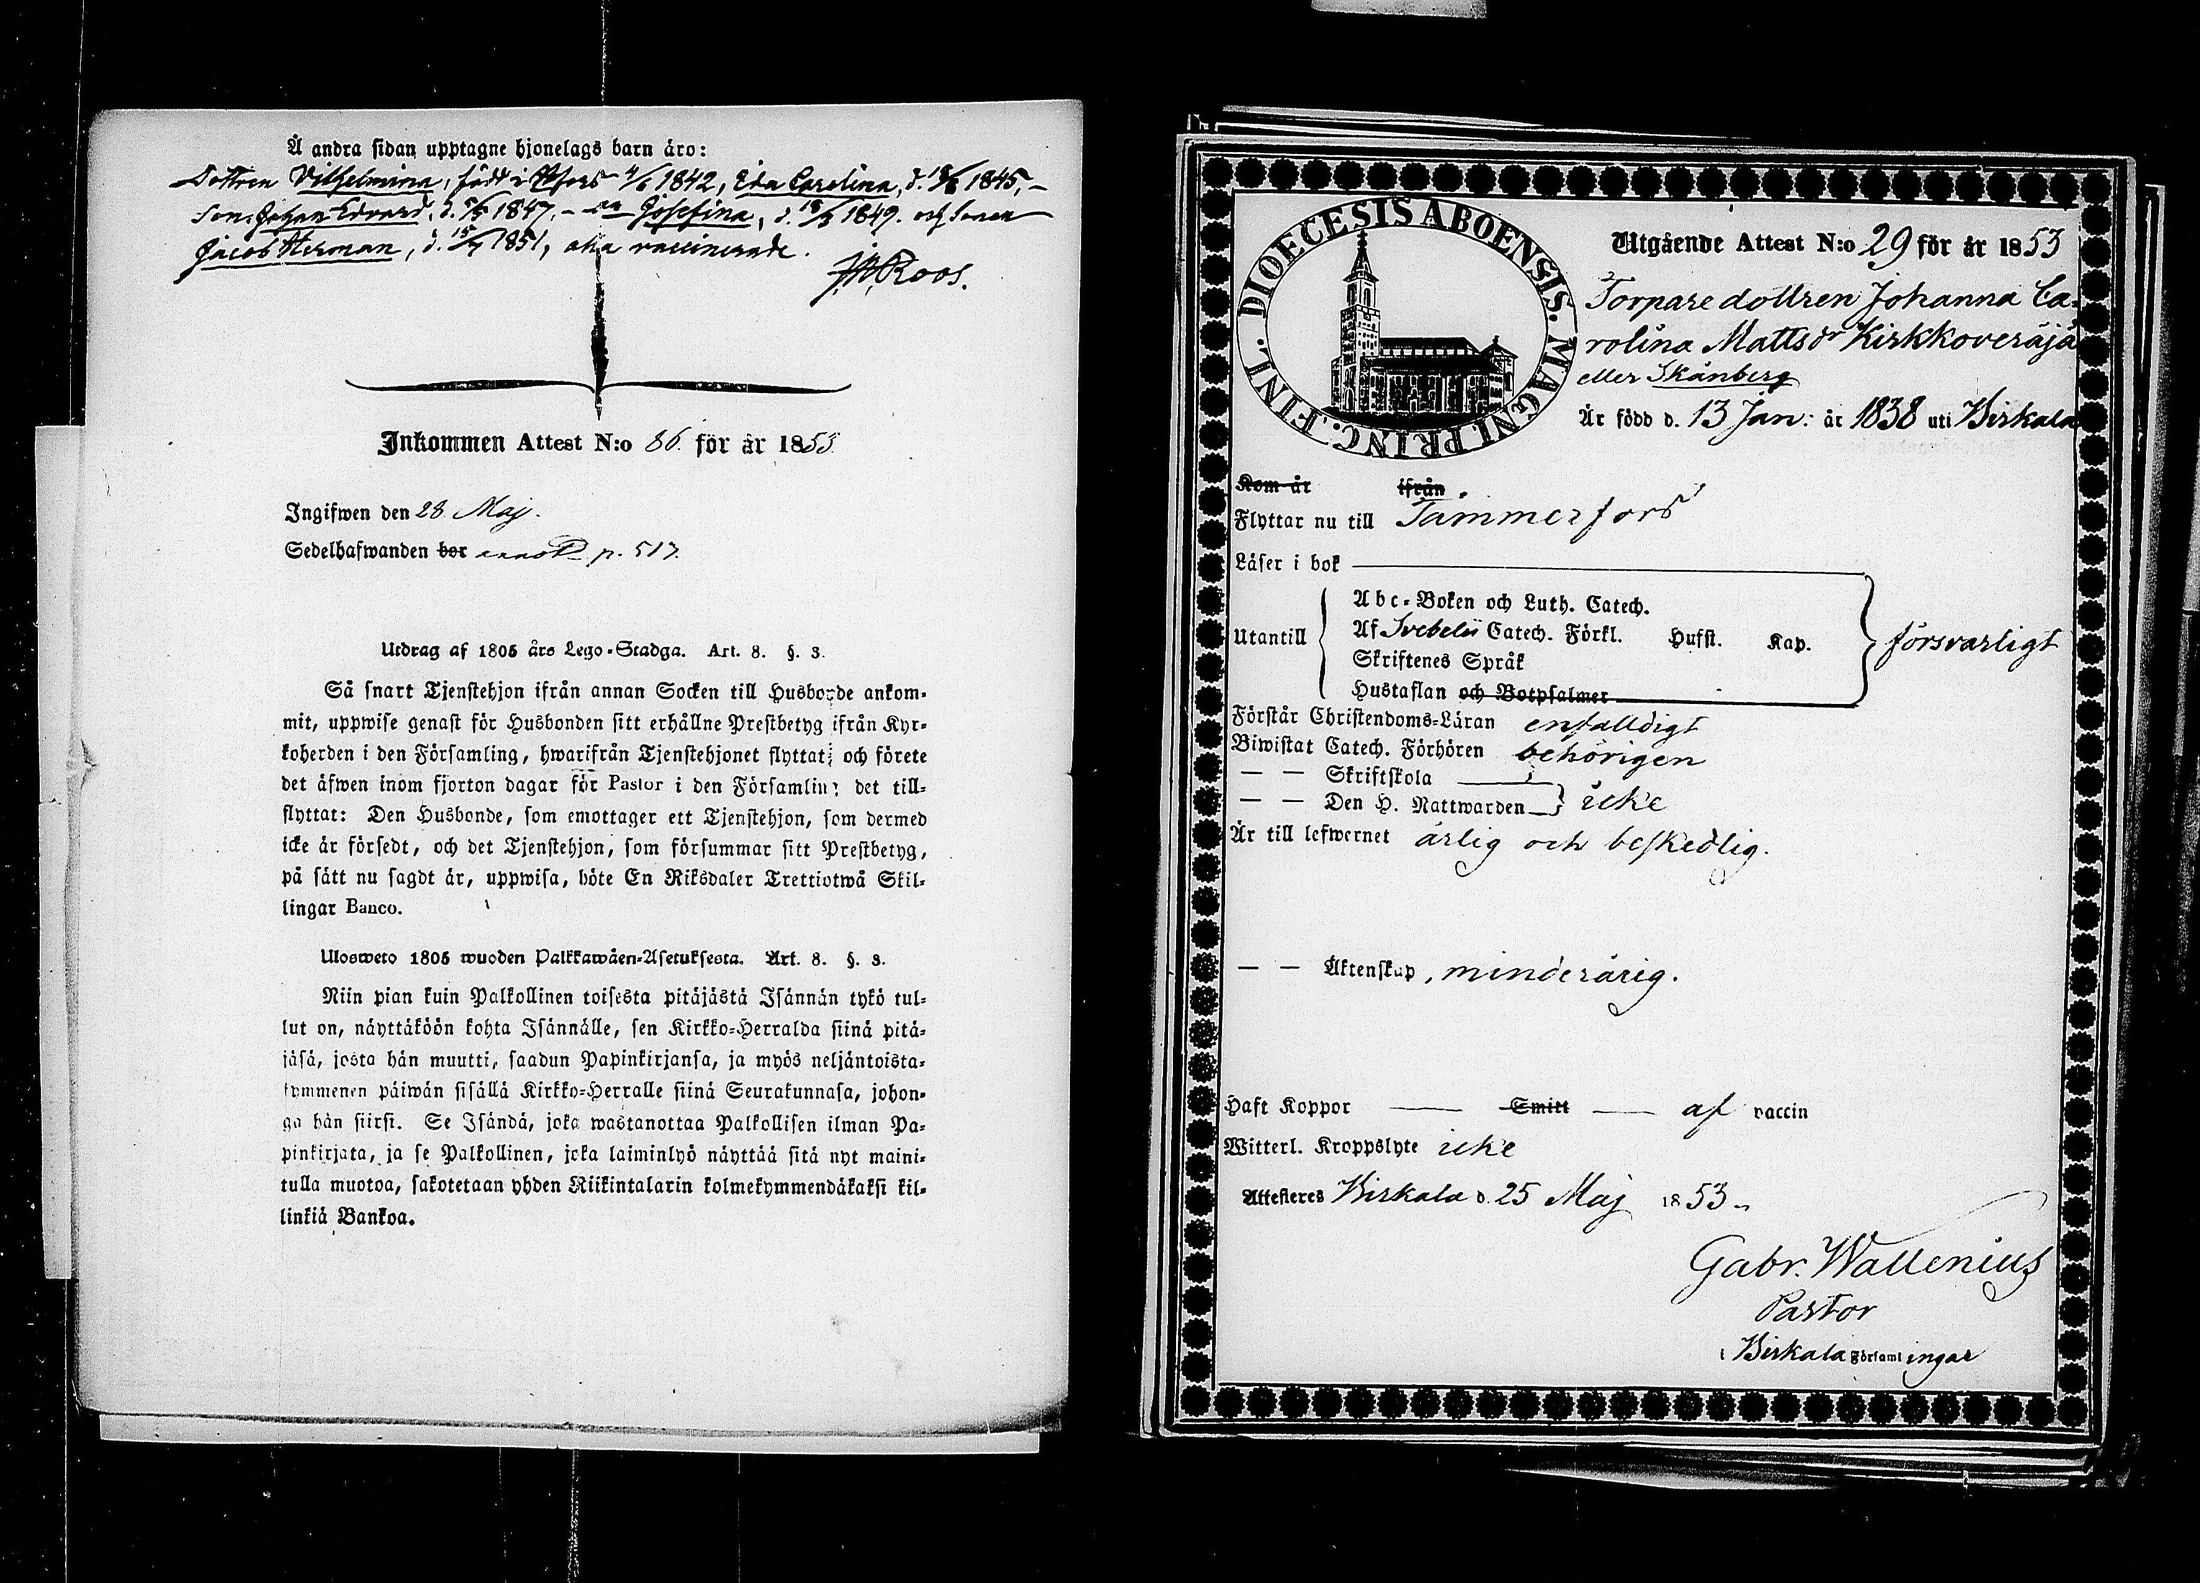 Å andra sidan upptagne hjonelags barn äro:
Dottren Vilhelmina, född i 4/6 1842, Eva Carolina, d. 1845,
Son. Johan Edvard, d. 1847, Josefina, d. 1849. och sonen
Jacob Herman, d. 1851, vaccinerade.
Roos.
Inkommen Attest N:o 86. för år 1853
Ingifwen den 28 Maj.
Sedelhafwanden bor p. 517.
Utdrag af 1805 års Lego-Stadga. Art. 8. §. 3.
Så snart Tjenstehjon ifrån annan Socken till Husbonde ankom-
mit, uppwise genast för Husbonden sitt erhållne Prestbetyg ifrån Kyr-
koherden i den Församling, hwarifrån Tjenstehjonet flyttat; och förete
det äfwen inom fjorton dagar för Pastor i den Församling det till-
flyttat: Den Husbonde, som emottager ett Tjenstehjon, som dermed
icke är försedt, och det Tjenstehjon, som försummar sitt Prestbetyg,
på sätt nu sagdt är, uppwisa, böte En Riksdaler Trettiotwå Skil-
lingar Banco.
Ulosweto 1805 wuoden Palkkawäen-Asetuksesta. Art. 8. §. 3.
Niin pian kuin Palkollinen toisesta pitäjästä Isännän tykö tul-
lut on, näyttäköön kohta Isännälle, sen Kirkko-Herralda siinä pitä-
jäsä, josta hän muutti, saadun Papinkirjansa, ja myös neljäntoista-
kymmenen päiwän sisällä Kirkko-Herralle siinä Seurakunnasa, johon-
ga hän siirsi. Se Isändä, joka wastanottaa Palkollisen ilman Pa-
pinkirjata, ja se Palkollinen, joka laiminlyö näyttää sitä nyt maini-
tulla muotoa, sakotetaan yhden Riikintalarin kolmekymmendäkaksi kil-
linkiä Bankoa.
DIOECESIS ABOENSIS. MAGNI. PRINC. FINL.
Utgående Attest N:o 29 för år 1853
Torpare dottren Johanna Ca-
rolina Mattsdr Kirkkoveräjä
eller Skånberg
Är född d. 13 Jan: år 1838 uti Birkala
Kom år ifrån
Flyttar nu till Tammerfors
Läser i bok
Abc-Boken och Luth. Catech.
Utantill Af Svebelii Catech. Förkl. Hufst. Kap. försvarligt
Skriftenes Språk
Hustaflan och Botpsalmer
Förstår Christendoms-Läran enfalldigt
Biwistat Catech. Förhören behörigen
— — Skriftskola
— — Den H. Nattwarden icke
Är till lefwernet ärlig och beskedlig.
— — Äktenskap, minderårig.
Haft Koppor — Smitt — af vaccin
Witterl. Kroppslyte icke
Attesteres Birkala d. 25 Maj 1853
Gabr. Wallenius
Pastor
i Birkala Församlingar